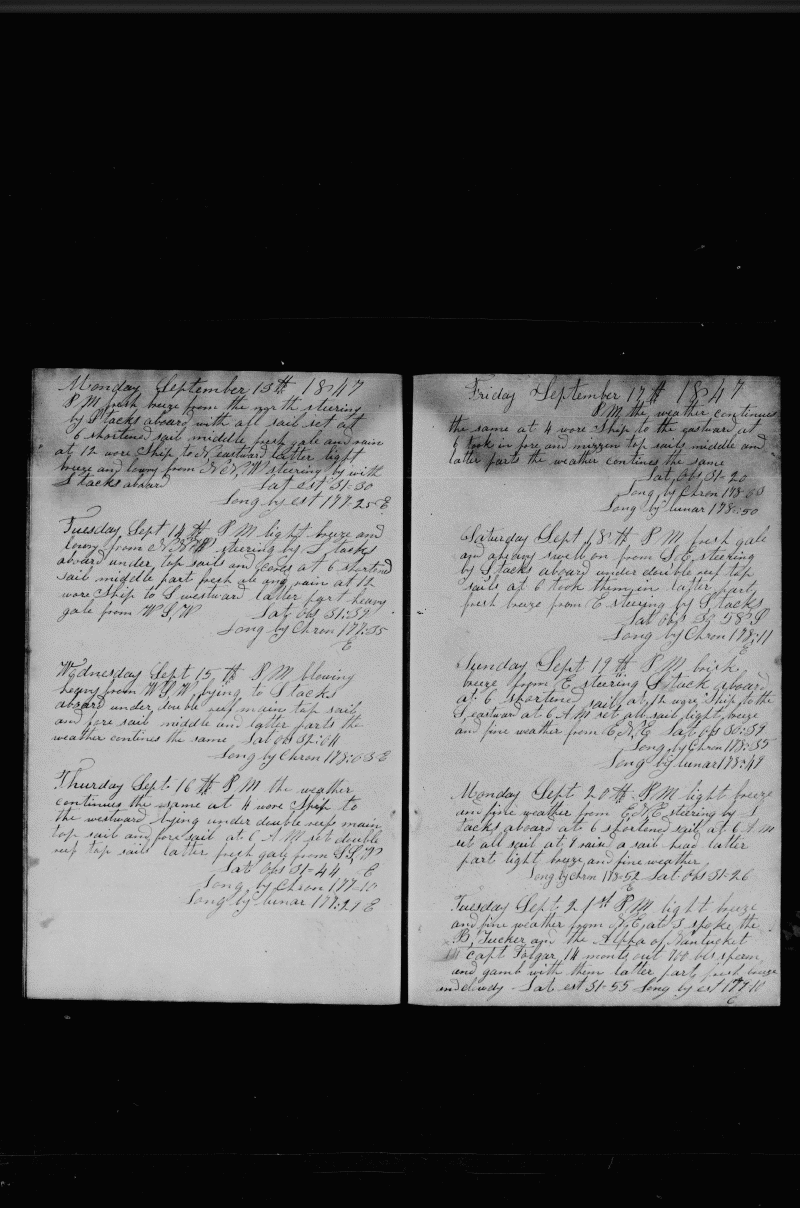 Monday September 13th 1847
P M fresh breze from the north steering
by S tacks aboard with all sail set at
6 shortened sail middle fresh gale and rain
at 12 wore Ship to N eastward latter light
breze and lowry from N N W steering by with
S tacks aboard Lat est 31-30
Long by est 177-25 E
Tuesday Sept 14th P M light breze and
lowry from N N W steering by S tacks
aboard under top sails and cores at 6 shortend
sail middle part fresh ale and rain at 12
wore Ship to S westward latter part heavy
gale from W S W Lat obs 31:39
Long by Chron 177:35
E
Wednesday Sept 15th P M blowing
heavy from W S W lying to S tacks
aboard under double reef main top sail
and fore sail middle and latter parts the
weather contines the same Lat obs 32:04
Long by Chron 178:03 E
Thursday Sept 16th P M the weather
continues the same at 4 wore Ship to
the westward lying under double reef main
top sail and fore sail at 6 A M set double
reef top sails latter fresh gale from S S W
Lat obs 31-44 E
Long by Chron 177-10
Long by lunar 177:21 E
Friday September 17th 1847
P M the weather continues
the same at 4 wore Ship to the eastward at
6 took in fore and mizzen top sails middle and
latter parts the weather contines the same
Lat obs 31-20
Long by Chron 178-53
Long by lunar 178:50
Saturday Sept 18th P M fresh gale
and aheavy swell on from S E steering
by S tacks aboard under double reef top
sails at 6 took them in latter part
fresh breze from E steering by S tacks
Lat obs 30 58 S
Long by Chron 178:11
E
Sunday Sept 19th P M brisk
breze from E steering S tack aboard
at 6 shortened sail at 12 wore Ship to the
S eastward at 6 A M set all sail light breze
and fine weather from E N E Lat obs 30:39
Long by Chron 178:35
Long by lunar 178:49
Monday Sept 20th P M light breeze
and fine weather from E N E steering by S
tacks aboard at 6 shortened sail at 6 A M
set all sail at 9 raised a sail head latter
part light breze and fine weather
Long by Chron 178-52 Lat obs 31-26
E
Tuesday Sept 21st P M light breze
and fine weather from N E at 3 spoke the
B, Tucker and the Alpha of Nantucket
capt Folger 14 monts out 700 bls sperm
and gamb with them latter part fresh breze
and cloudy Lat est 31-55 Long by est 177-10
E